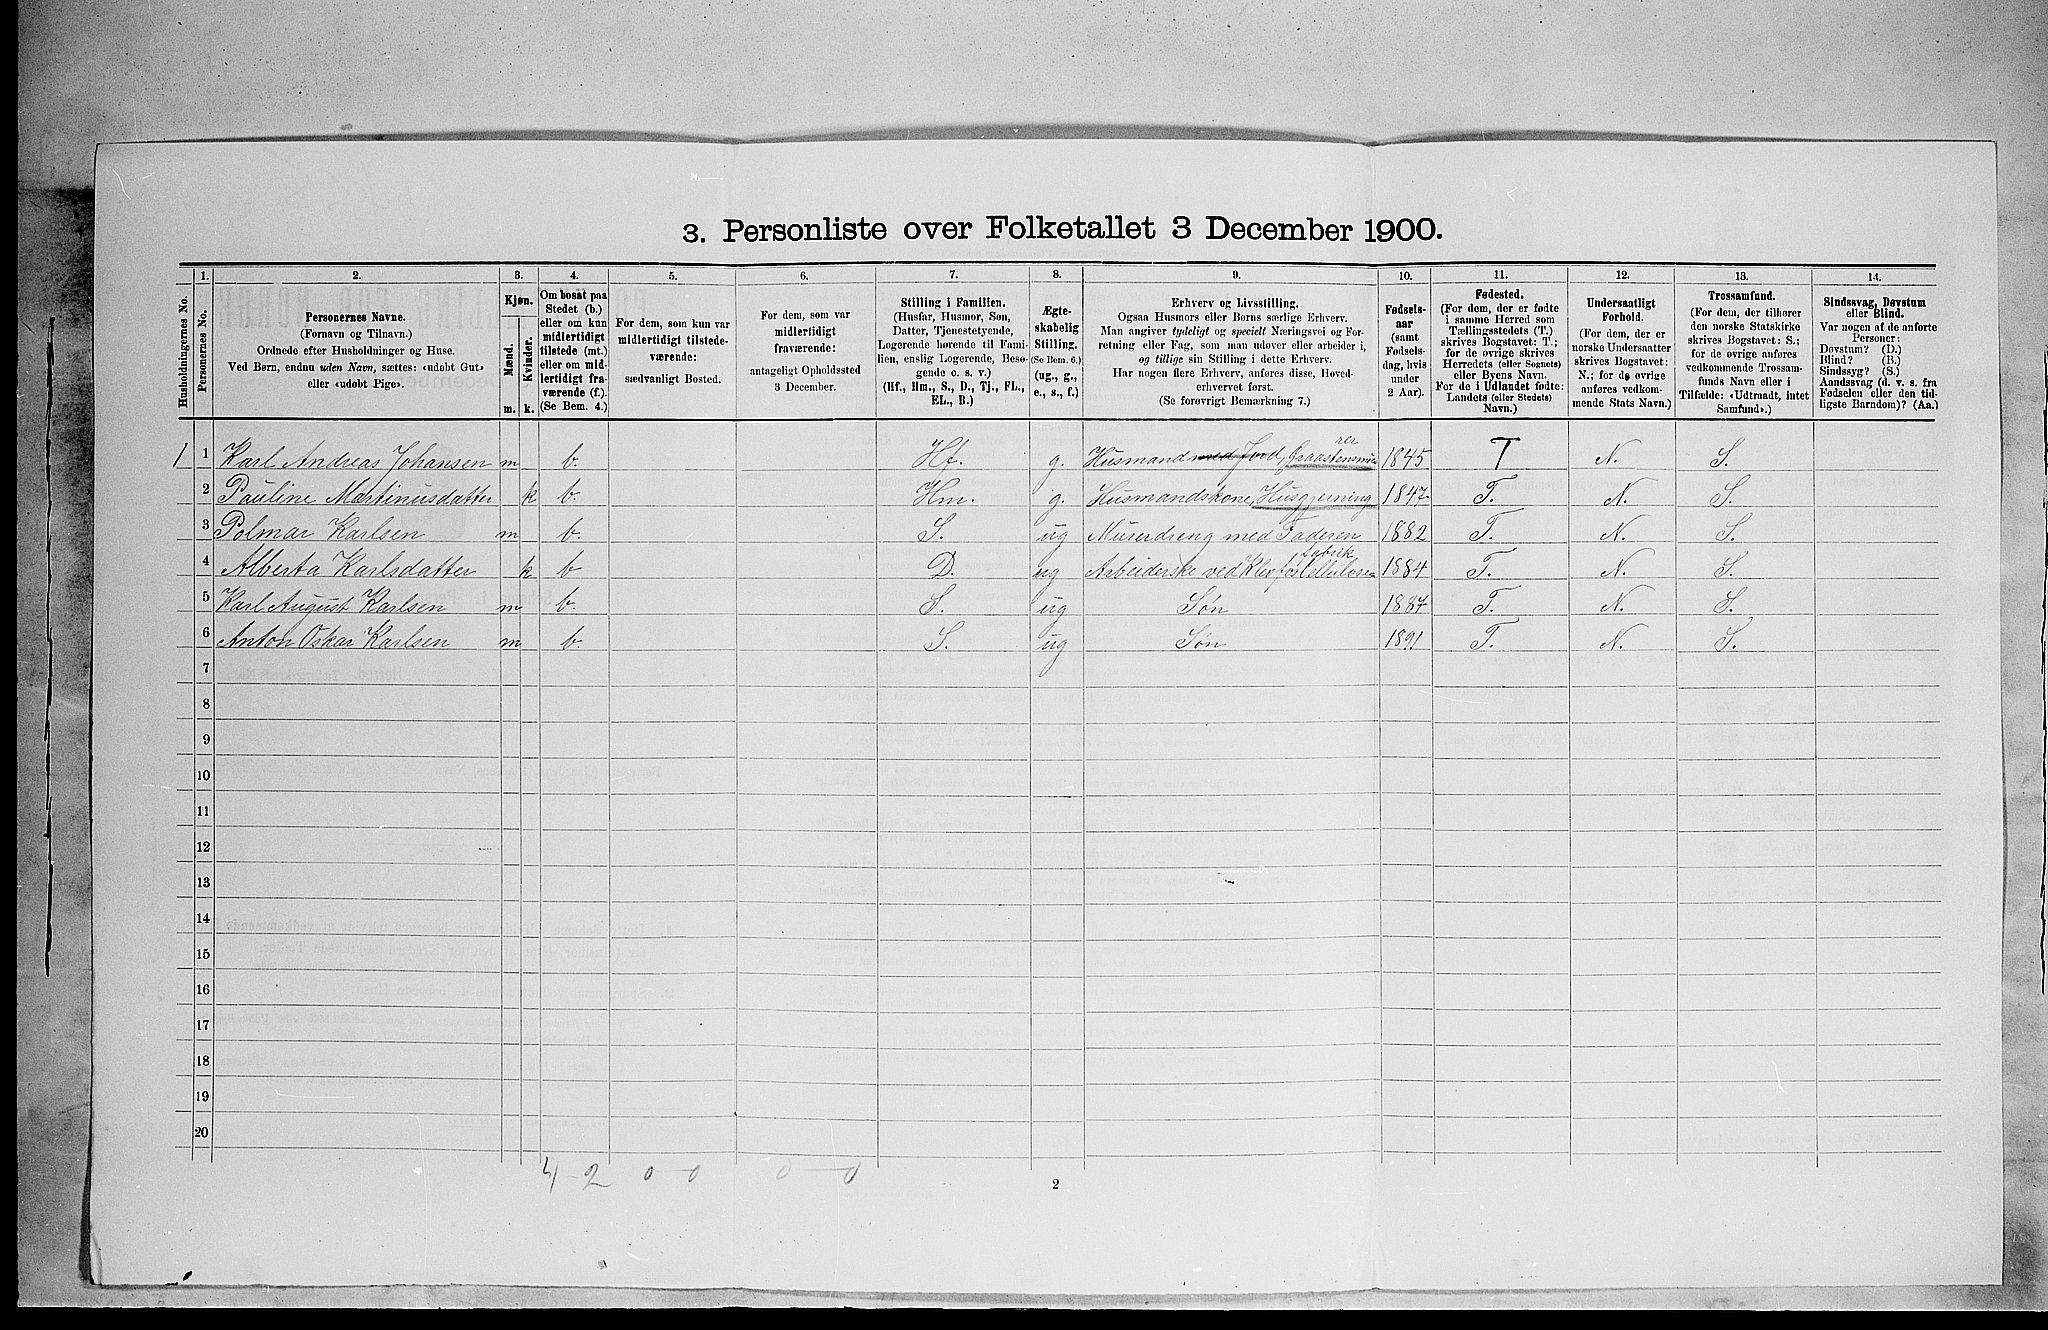 3. Personliste over Folketallet 3 December 1900.
1. 2. 3. 4. 5. 6. 7. 8. 9. 10. 11. 12. 13. 14.
Husholdningernes No.
Personernes No.
Personernes Navne.
(Fornavn og Tilnavn.)
Ordnede efter Husholdninger og Huse.
Ved Børn, endnu uden Navn, sættes: «udøbt Gut»
eller «udøbt Pige».
Kjøn.
Mænd.
Kvinder.
m. k.
Om bosat paa
Stedet (b.)
eller om kun
midlertidigt
tilstede (mt.)
eller om mid-
lertidigt fra-
værende (f.).
(Se Bem. 4.)
For dem, som kun var
midlertidigt tilstede-
værende:
sædvanligt Bosted.
For dem, som var
midlertidigt
fraværende:
antageligt Opholdssted
3 December.
Stilling i Familien.
(Husfar, Husmor, Søn,
Datter, Tjenestetyende,
Logerende hørende til Fami-
lien, enslig Logerende, Besø-
gende o. s. v.)
(Hf., Hm., S., D., Tj., FL.,
EL., B.)
Ægte-
skabelig
Stilling.
(Se Bem. 6.)
(ug., g.,
e., s., f.)
Erhverv og Livsstilling.
Ogsaa Husmors eller Børns særlige Erhverv.
Man angiver tydeligt og specielt Næringsvei og For-
retning eller Fag, som man udøver eller arbeider i,
og tillige sin Stilling i dette Erhverv.
Har nogen flere Erhverv, anføres disse, Hoved-
erhvervet først.
(Se forøvrigt Bemærkning 7.)
Fødsels-
aar
(samt
Fødsels-
dag, hvis
under
2 Aar).
Fødested.
(For dem, der er fødte
i samme Herred som
Tællingsstedets (T.)
skrives Bogstavet: T.;
for de øvrige skrives
Herredets (eller Sognets)
eller Byens Navn.
For de i Udlandet fødte:
Landets (eller Stedets)
Navn.)
Undersaatligt
Forhold.
(For dem, der er
norske Undersaatter
skrives Bogstavet:
N.; for de øvrige
anføres vedkom-
mende Stats Navn.)
Trossamfund.
(For dem, der tilhører
den norske Statskirke
skrives Bogstavet: S.;
for de øvrige anføres
vedkommende Trossam-
funds Navn eller i
Tilfælde: «Udtraadt, intet
Samfund».)
Sindssvag, Døvstum
eller Blind.
Var nogen af de anførte
Personer:
Døvstum? (D.)
Blind? (B.)
Sindssyg? (S.)
Aandssvag (d. v. s. fra
Fødselen eller den tid-
ligste Barndom)? (Aa.)
1 1 Karl Andreas Johansen m b. Hf. g. Husmand med Jord, Graastensmurer 1845 T N. S.
2 Pauline Martinusdatter k b. Hm. g. Husmandskone, Husgjerning 1847 T. N. S.
3 Polmar Karlsen m b. S. ug Murerdreng med Faderen 1882 T. N. S.
4 Alberta Karlsdatter k b D. ug Arbeiderske ved Klevfos Cellulosefabrik 1884 T. N. S.
5 Karl August Karlsen m b. S. ug Søn 1887 T. N. S.
6 Anton Oskar Karlsen m b. S. ug Søn 1891 T. N. S.
7
8
9
10
11
12
13
14
15
16
17
18
19
20
4-2 0-0 0-0
2